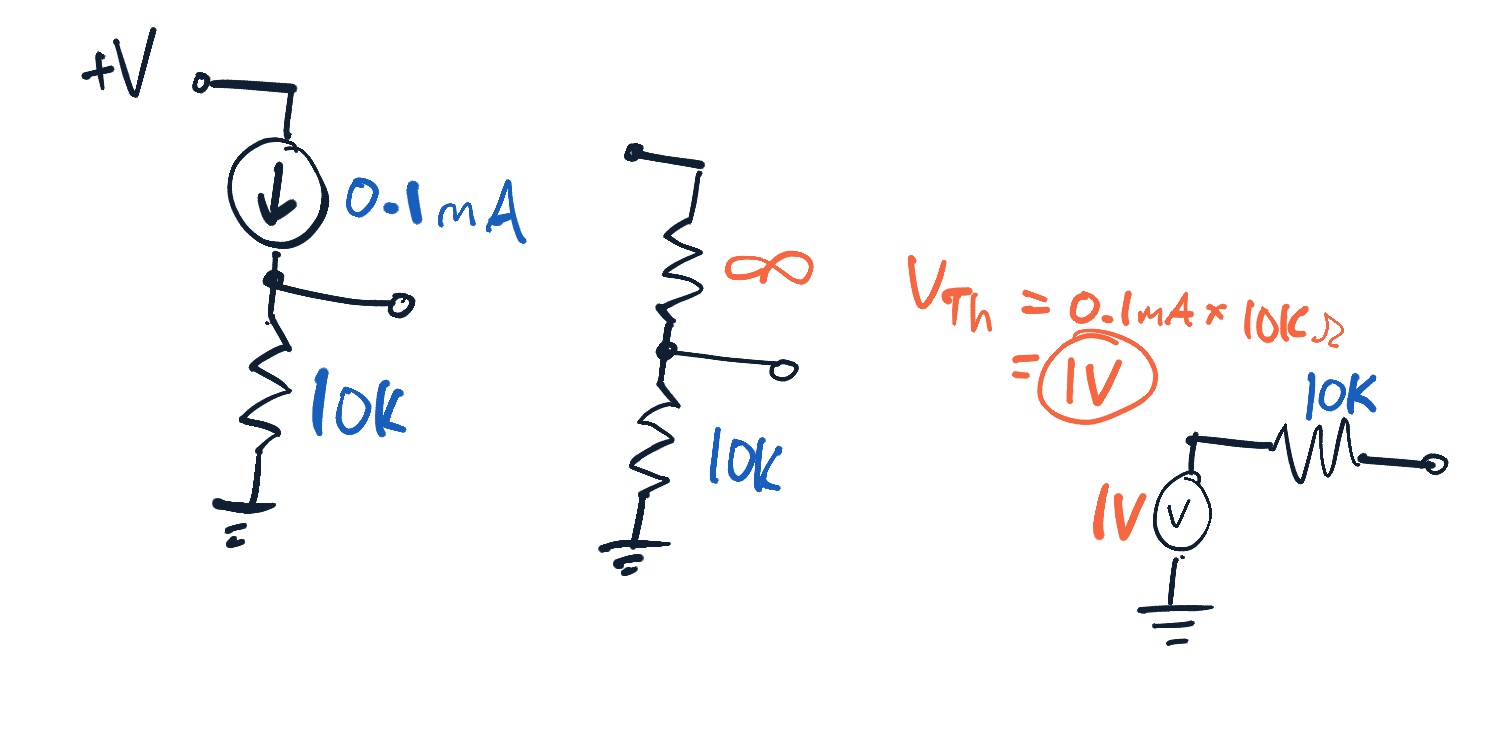 +V
0.1mA
10K
∞
10K
VTh = 0.1mA × 10KΩ
= 1V
10K
1V
V